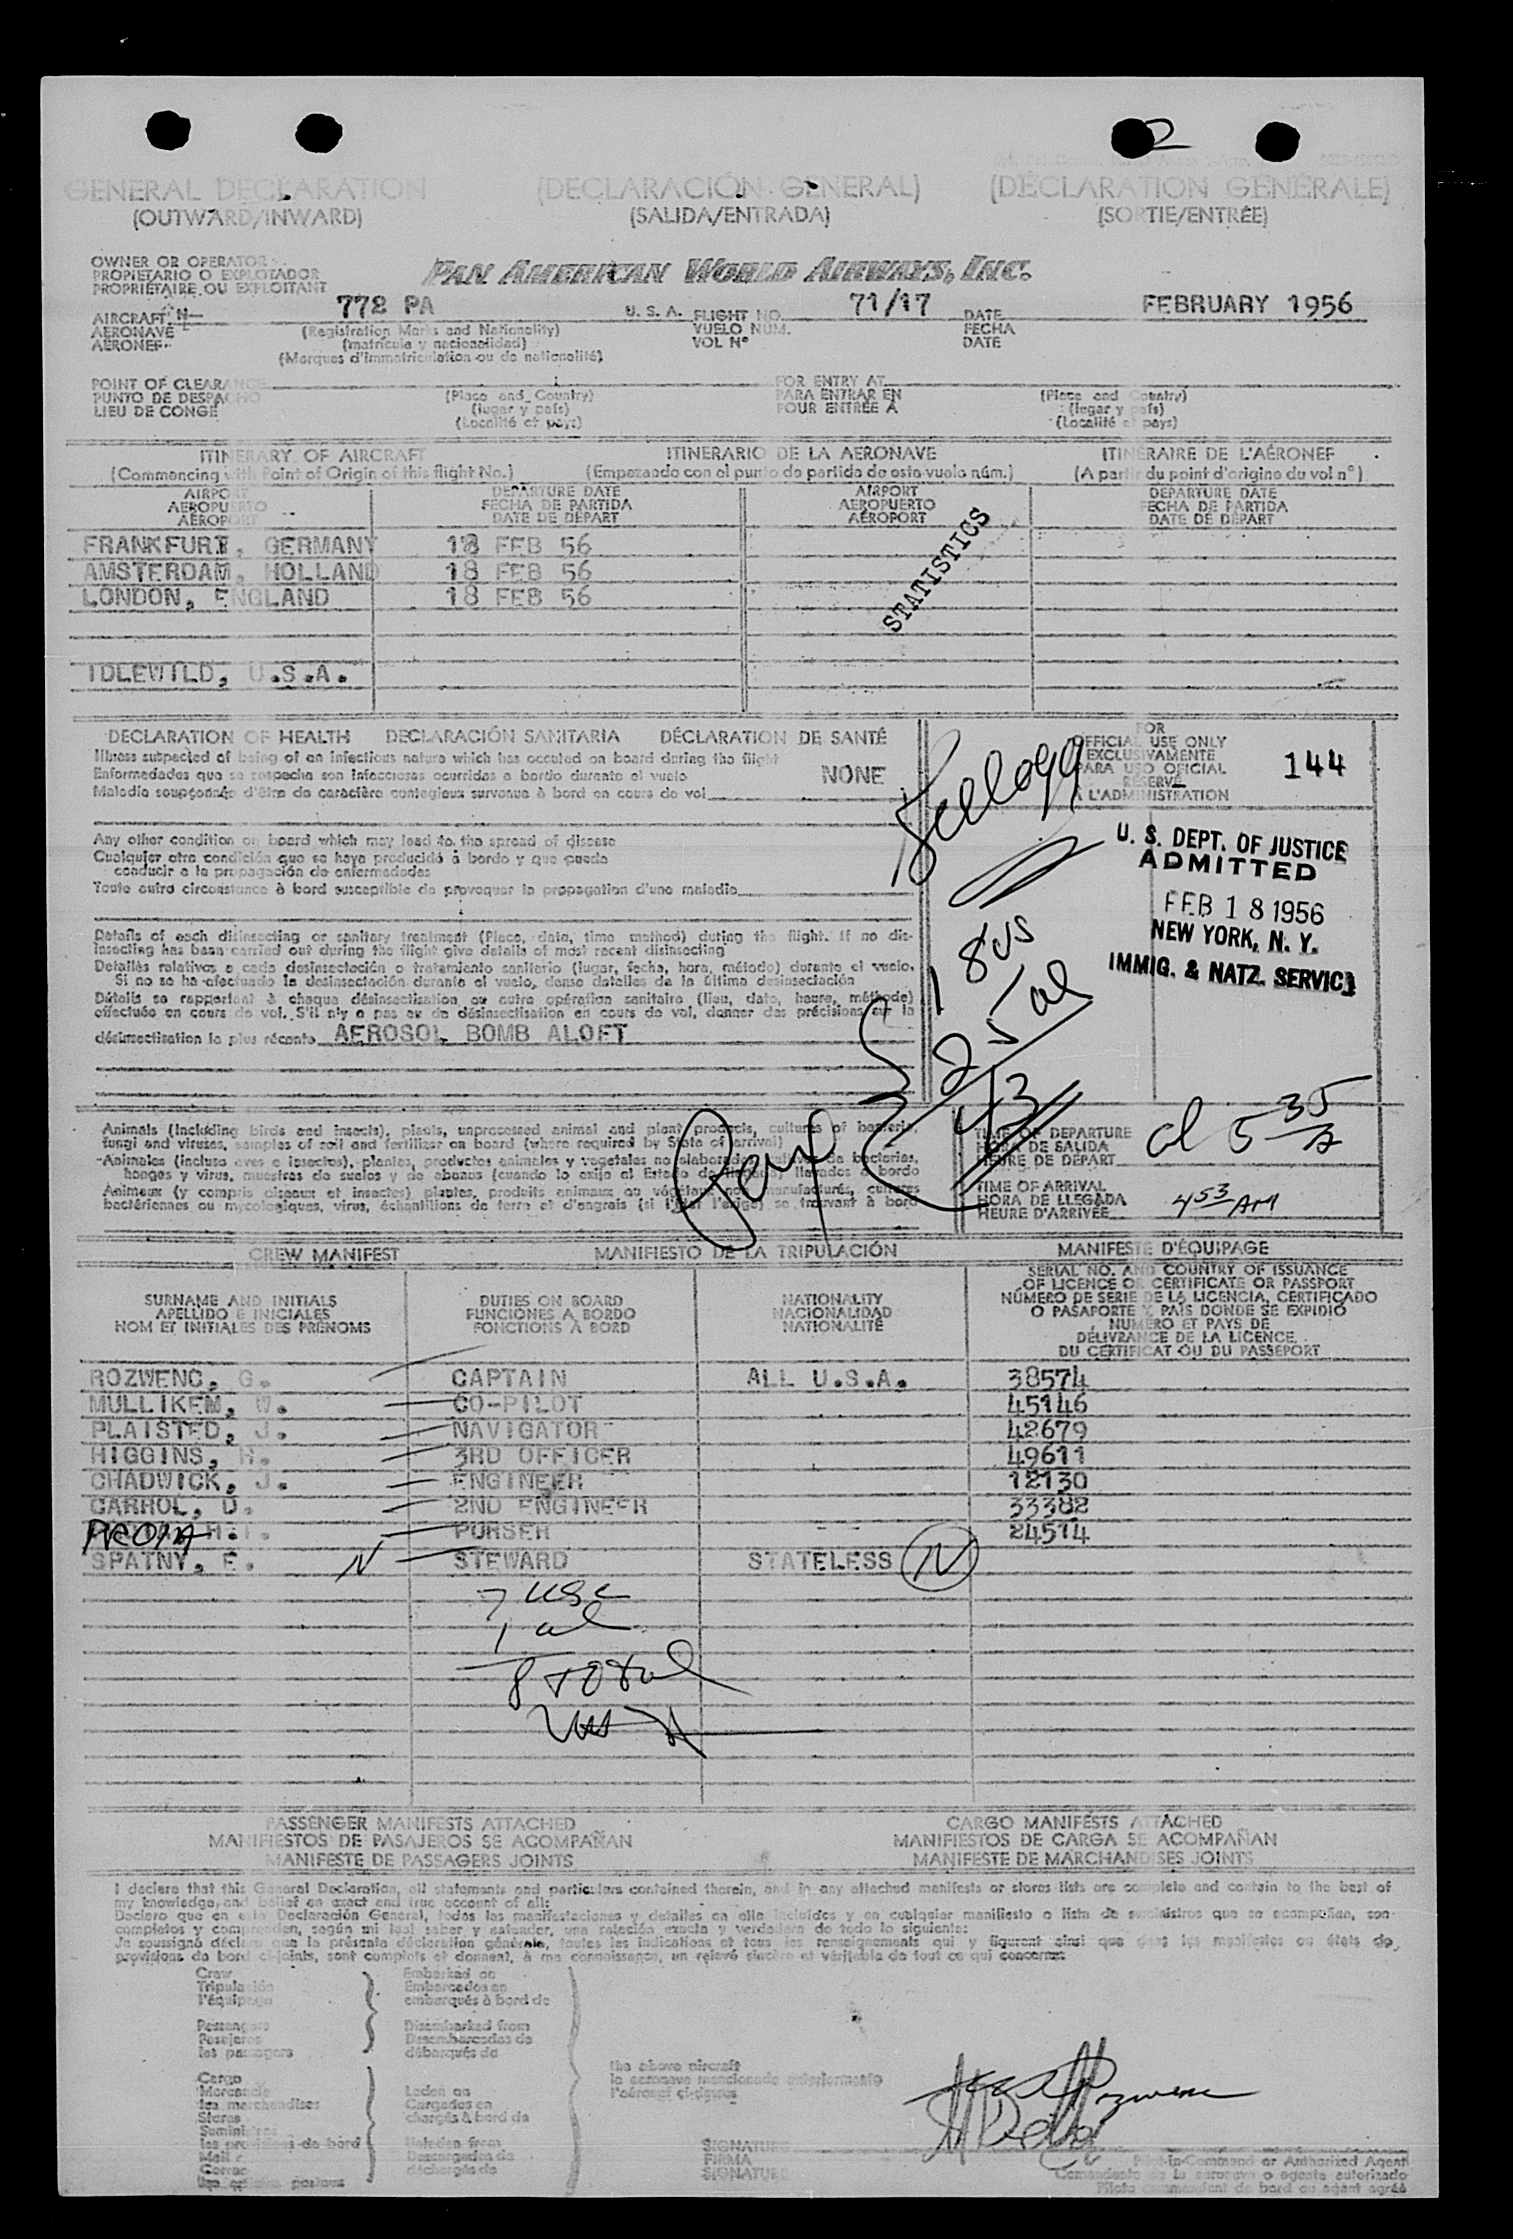 2
GENERAL DECLARATION (DECLARACIÓN GENERAL) (DÉCLARATION GÉNÉRALE)
(OUTWARD/INWARD) (SALIDA/ENTRADA) (SORTIE/ENTRÉE)
OWNER OR OPERATOR
PROPIETARIO O EXPLOTADOR
PROPRIÉTAIRE OU EXPLOITANT
PAN AMERICAN WORLD AIRWAYS, INC.
AIRCRAFT N- 772 PA U. S. A. FLIGHT NO. 71/17 DATE FEBRUARY 1956
AERONAVE (Registration Marks and Nationality) VUELO NÚM. FECHA
AÉRONEF (matrícula y nacionalidad) VOL Nº DATE
(Marques d'immatriculation ou de nationalité)
POINT OF CLEARANCE FOR ENTRY AT
PUNTO DE DESPACHO (Place and Country) PARA ENTRAR EN (Place and Country)
LIEU DE CONGÉ (lugar y país) POUR ENTRÉE À (lugar y país)
(Localité et pays) (Localité et pays)
ITINERARY OF AIRCRAFT ITINERARIO DE LA AERONAVE ITINÉRAIRE DE L'AÉRONEF
(Commencing with Point of Origin of this flight No.) (Empezando con el punto de partida de este vuelo núm.) (A partir du point d'origine du vol nº)
AIRPORT DEPARTURE DATE AIRPORT DEPARTURE DATE
AEROPUERTO FECHA DE PARTIDA AEROPUERTO FECHA DE PARTIDA
AÉROPORT DATE DE DÉPART AÉROPORT DATE DE DÉPART
FRANKFURT, GERMANY 18 FEB 56
AMSTERDAM, HOLLAND 18 FEB 56
LONDON, ENGLAND 18 FEB 56
STATISTICS
IDLEWILD, U.S.A.
DECLARATION OF HEALTH DECLARACIÓN SANITARIA DÉCLARATION DE SANTÉ
Illness suspected of being of an infectious nature which has occured on board during the flight
Enfermedades que se sospecha son infecciosas ocurridas a bordo durante el vuelo NONE
Maladie soupçonnée d'être de caractère contagieux survenue à bord en cours de vol
FOR
OFFICIAL USE ONLY
EXCLUSIVAMENTE
PARA USO OFICIAL
RÉSERVÉ
A L'ADMINISTRATION
144
Kellogg
Any other condition on board which may lead to the spread of disease
Cualquier otra condición que se haya producido a bordo y que pueda
conducir a la propagación de enfermedades
Toute autre circonstance à bord susceptible de provoquer la propagation d'une maladie
U. S. DEPT. OF JUSTICE
ADMITTED
FEB 18 1956
NEW YORK, N. Y.
IMMIG. & NATZ. SERVICE
Details of each disinsecting or sanitary treatment (Place, date, time method) during the flight. If no dis-
insecting has been carried out during the flight give details of most recent disinsecting
Detalles relativos a cada desinsectación o tratamiento sanitario (lugar, fecha, hora, método) durante el vuelo.
Si no se ha efectuado la desinsectación durante el vuelo, dense detalles de la última desinsectación
Détails se rapportant à chaque désinsectisation ou autre opération sanitaire (lieu, date, heure, méthode)
effectuée en cours de vol. S'il n'y a pas eu de désinsectisation en cours de vol, donner des précisions sur la
désinsectisation la plus récente AEROSOL BOMB ALOFT
18 us
25 al
43
Animals (including birds and insects), plants, unprocessed animal and plant products, cultures of bacteria,
fungi and viruses, samples of soil and fertilizer on board (where required by State of arrival)
Animales (incluso aves e insectos), plantas, productos animales y vegetales no elaborados, cultivos de bacterias,
hongos y virus, muestras de suelos y de abonos (cuando lo exija el Estado de llegada) llevados a bordo
Animaux (y compris oiseaux et insectes) plantes, produits animaux ou végétaux non manufacturés, cultures
bactériennes ou mycologiques, virus, échantillons de terre et d'engrais (si l'état l'exige) se trouvant à bord
TIME OF DEPARTURE
HORA DE SALIDA
HEURE DE DÉPART
al 5 35 A
TIME OF ARRIVAL
HORA DE LLEGADA
HEURE D'ARRIVÉE
4 53 AM
CREW MANIFEST MANIFIESTO DE LA TRIPULACIÓN MANIFESTE D'ÉQUIPAGE
SURNAME AND INITIALS
APELLIDO E INICIALES
NOM ET INITIALES DES PRÉNOMS
DUTIES ON BOARD
FUNCIONES A BORDO
FONCTIONS À BORD
NATIONALITY
NACIONALIDAD
NATIONALITÉ
SERIAL NO. AND COUNTRY OF ISSUANCE
OF LICENCE OR CERTIFICATE OR PASSPORT
NÚMERO DE SERIE DE LA LICENCIA, CERTIFICADO
O PASAPORTE Y PAÍS DONDE SE EXPIDIÓ
NUMÉRO ET PAYS DE
DÉLIVRANCE DE LA LICENCE,
DU CERTIFICAT OU DU PASSEPORT
ROZWENC, G. CAPTAIN ALL U.S.A. 38574
MULLIKEN, W. CO-PILOT 45146
PLAISTED, J. NAVIGATOR 42679
HIGGINS, H. 3RD OFFICER 49611
CHADWICK, J. ENGINEER 12130
CARROL, D. 2ND ENGINEER 33382
PURSER 24514
SPATNY, E. N STEWARD STATELESS N
7 usc
1 al
8 total
PASSENGER MANIFESTS ATTACHED CARGO MANIFESTS ATTACHED
MANIFIESTOS DE PASAJEROS SE ACOMPAÑAN MANIFIESTOS DE CARGA SE ACOMPAÑAN
MANIFESTE DE PASSAGERS JOINTS MANIFESTE DE MARCHANDISES JOINTS
I declare that this General Declaration, all statements and particulars contained therein, and in any attached manifests or stores lists are complete and contain to the best of
my knowledge, and belief an exact and true account of all:
Declaro que en esta Declaración General, todas las manifestaciones y detalles en ella incluidos y en cualquier manifiesto o lista de suministros que se acompañan, son
completos y comprenden, según mi leal saber y entender, una relación exacta y verdadera de todo lo siguiente:
Je soussigné déclare que la présente déclaration générale, toutes les indications et tous les renseignements qui y figurent ainsi que dans les manifestes ou états de
provisions de bord ci-joints, sont complets et donnent, à ma connaissance, un relevé sincère et véritable de tout ce qui concerne:
Crew Embarked on
Tripulación Embarcados en
l'équipage embarqués à bord de
Passengers Disembarked from
Pasajeros Desembarcados de
les passagers débarqués de
the above aircraft
la aeronave mencionada anteriormente
l'aéronef ci-dessus
Cargo
Mercancía Laden on
les marchandises Cargados en
Stores chargés à bord de
Suministros
les provisions de bord Unladen from
Mail Descargados de
Correo déchargés de
SIGNATURE
FIRMA
SIGNATURE
Pilot-in-Command or Authorized Agent
Comandante de la aeronave o agente autorizado
Pilote commandant de bord ou agent agréé